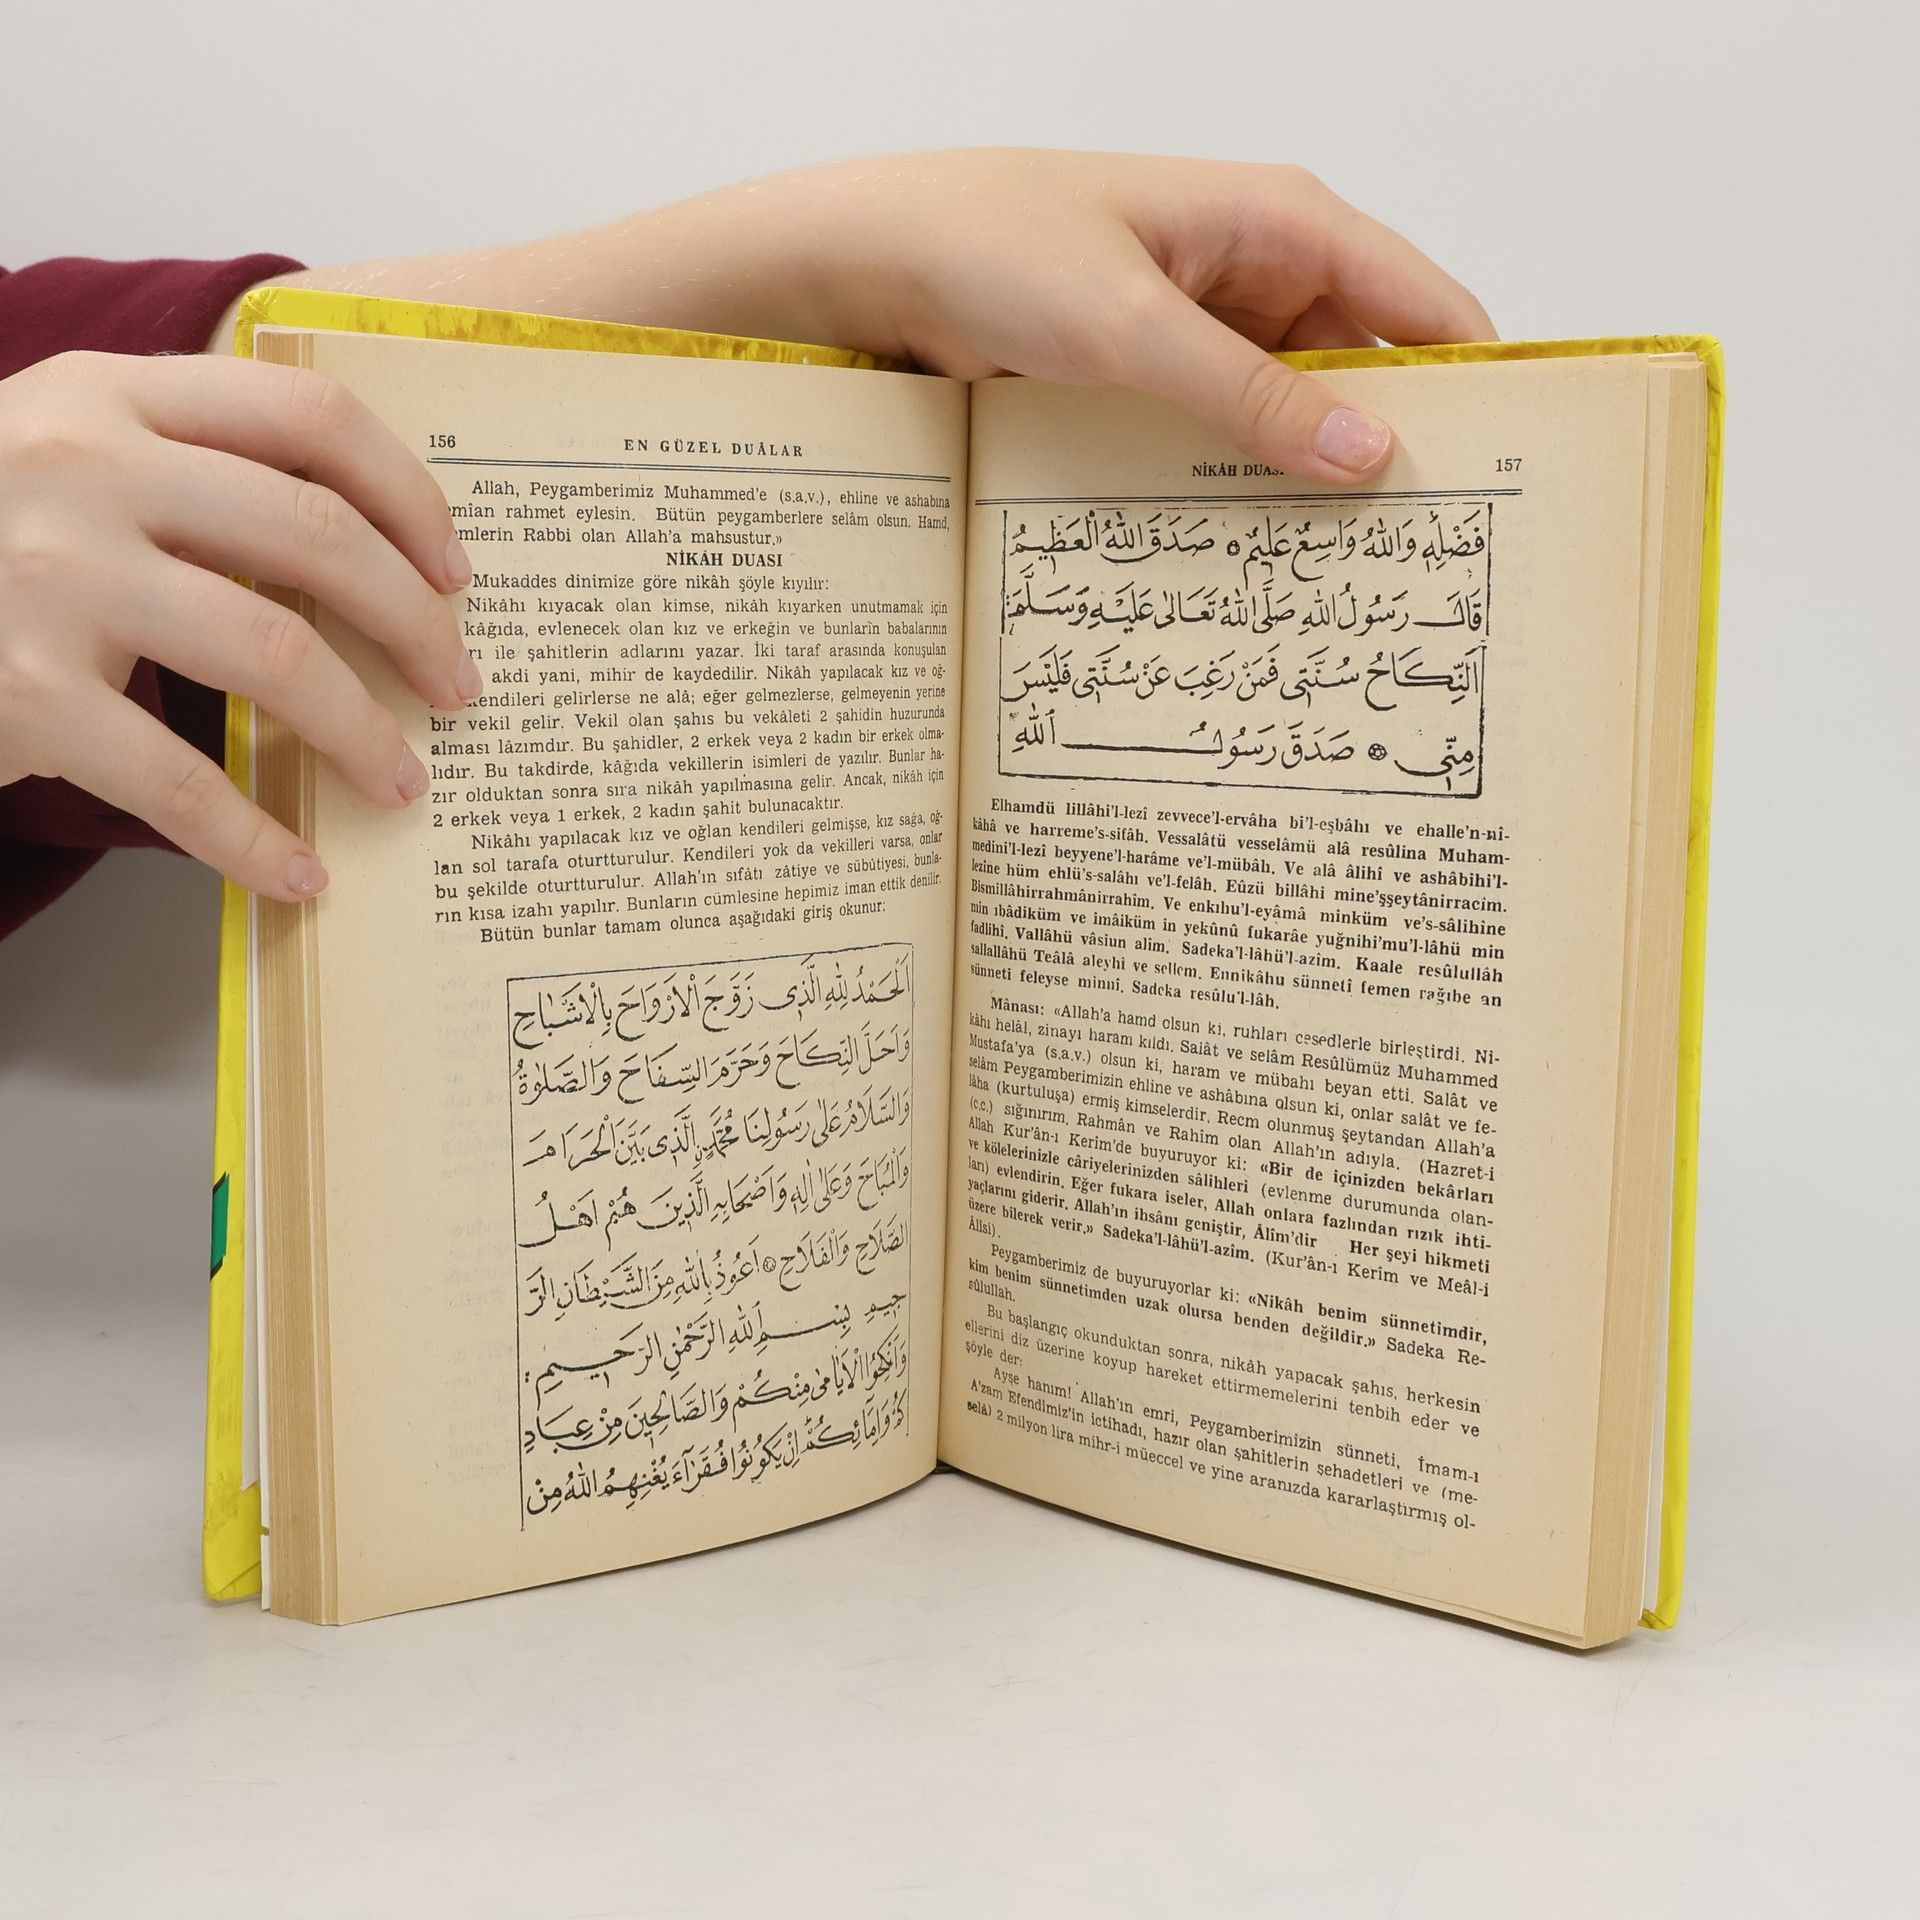 156
EN GÜZEL DUÂLAR
Allah, Peygamberimiz Muhammed'e (s.a.v.), ehline ve ashabına
rahmet eylesin. Bütün peygamberlere selâm olsun. Hamd,
Rabbi olan Allah'a mahsustur.»
NİKÂH DUASI
Mukaddes dinimize göre nikâh şöyle kıyılır:
Nikâhı kıyacak olan kimse, nikâh kıyarken unutmamak için
kâğıda, evlenecek olan kız ve erkeğin ve bunların babalarının
ile şahitlerin adlarını yazar. İki taraf arasında konuşulan
akdi yani, mihir de kaydedilir. Nikâh yapılacak kız ve oğ-
kendileri gelirlerse ne alâ; eğer gelmezlerse, gelmeyenin yerine
bir vekil gelir. Vekil olan şahıs bu vekâleti 2 şahidin huzurunda
alması lâzımdır. Bu şahidler, 2 erkek veya 2 kadın bir erkek olma-
lıdır. Bu takdirde, kâğıda vekillerin isimleri de yazılır. Bunlar ha-
zır olduktan sonra sıra nikâh yapılmasına gelir. Ancak, nikâh için
2 erkek veya 1 erkek, 2 kadın şahit bulunacaktır.
Nikâhı yapılacak kız ve oğlan kendileri gelmişse, kız sağa, oğ-
lan sol tarafa oturtturulur. Kendileri yok da vekilleri varsa, onlar
bu şekilde oturtturulur. Allah'ın sıfâtı zâtiye ve sübûtiyesi, bunla-
rın kısa izahı yapılır. Bunların cümlesine hepimiz iman ettik denilir.
Bütün bunlar tamam olunca aşağıdaki giriş okunur:
اَلْحَمْدُ لِلّٰهِ الَّذِى زَوَّجَ الْاَرْوَاحَ بِالْاَشْبَاحِ
وَاَحَلَّ النِّكَاحَ وَحَرَّمَ السِّفَاحَ وَالصَّلٰوةُ
وَالسَّلَامُ عَلٰى رَسُولِنَا مُحَمَّدٍ الَّذِى بَيَّنَ الْحَرَامَ
وَالْمُبَاحَ وَعَلٰى اٰلِهِ وَاَصْحَابِهِ الَّذِينَ هُمْ اَهْلُ
الصَّلَاحِ وَالْفَلَاحِ ۞ اَعُوذُ بِاللّٰهِ مِنَ الشَّيْطَانِ الرَّ
جِيمِ بِسْمِ اللّٰهِ الرَّحْمٰنِ الرَّحِيمِ :
وَاَنْكِحُوا الْاَيَامٰى مِنْكُمْ وَالصَّالِحِينَ مِنْ عِبَادِ
كُمْ وَاِمَائِكُمْ اِنْ يَكُونُوا فُقَرَاءَ يُغْنِهِمُ اللّٰهُ مِنْ
NİKÂH
157
فَضْلِهِ وَاللّٰهُ وَاسِعٌ عَلِيمٌ ۞ صَدَقَ اللّٰهُ الْعَظِيمُ
قَالَ رَسُولُ اللّٰهِ صَلَّى اللّٰهُ تَعَالٰى عَلَيْهِ وَسَلَّمَ:
اَلنِّكَاحُ سُنَّتِى فَمَنْ رَغِبَ عَنْ سُنَّتِى فَلَيْسَ
مِنِّى ۞ صَدَقَ رَسُولُ اللّٰهِ
Elhamdü lillâhi'l-lezî zevvece'l-ervâha bi'l-eşbâhı ve ehalle'n-nî-
kâhâ ve harreme's-sifâh. Vessalâtü vesselâmü alâ resûlina Muham-
medini'l-lezî beyyene'l-harâme ve'l-mübâh. Ve alâ âlihî ve ashâbihi'l-
lezîne hüm ehlü's-salâhı ve'l-felâh. Eûzü billâhi mine'şşeytânirracîm.
Bismillâhirrahmânirrahîm. Ve enkıhu'l-eyâmâ minküm ve's-sâlihîne
min ıbâdiküm ve imâiküm in yekûnû fukarâe yuğnihi'mu'l-lâhü min
fadlihî. Vallâhü vâsiun alîm. Sadeka'l-lâhü'l-azîm. Kaale resûlullâh
sallallâhü Teâlâ aleyhi ve sellem. Ennikâhu sünnetî femen rağıbe an
sünnetî feleyse minnî. Sadeka resûlu'l-lâh.
Mânası: «Allah'a hamd olsun ki, ruhları cesedlerle birleştirdi. Ni-
kâhı helâl, zinayı haram kıldı. Salât ve selâm Resûlümüz Muhammed
Mustafa'ya (s.a.v.) olsun ki, haram ve mübahı beyan etti. Salât ve
selâm Peygamberimizin ehline ve ashâbına olsun ki, onlar salât ve fe-
lâha (kurtuluşa) ermiş kimselerdir. Recm olunmuş şeytandan Allah'a
(c.c.) sığınırım. Rahmân ve Rahîm olan Allah'ın adıyla. (Hazret-i
Allah Kur'ân-ı Kerîm'de buyuruyor ki: «Bir de içinizden bekârları
ve kölelerinizle câriyelerinizden sâlihleri (evlenme durumunda olan-
ları) evlendirin. Eğer fukara iseler, Allah onlara fazlından rızık ihti-
yaçlarını giderir. Allah'ın ihsânı geniştir, Âlîm'dir Her şeyi hikmeti
üzere bilerek verir.» Sadeka'l-lâhü'l-azîm. (Kur'ân-ı Kerîm ve Meâl-i
Âlîsi).
Peygamberimiz de buyuruyorlar ki: «Nikâh benim sünnetimdir,
kim benim sünnetimden uzak olursa benden değildir.» Sadeka Re-
sûlullah.
Bu başlangıç okunduktan sonra, nikâh yapacak şahıs, herkesin
ellerini diz üzerine koyup hareket ettirmemelerini tenbih eder ve
şöyle der:
Ayşe hanım! Allah'ın emri, Peygamberimizin sünneti, İmam-ı
A'zam Efendimiz'in ictihadı, hazır olan şahitlerin şehadetleri ve (me-
selâ) 2 milyon lira mihr-i müeccel ve yine aranızda kararlaştırmış ol-